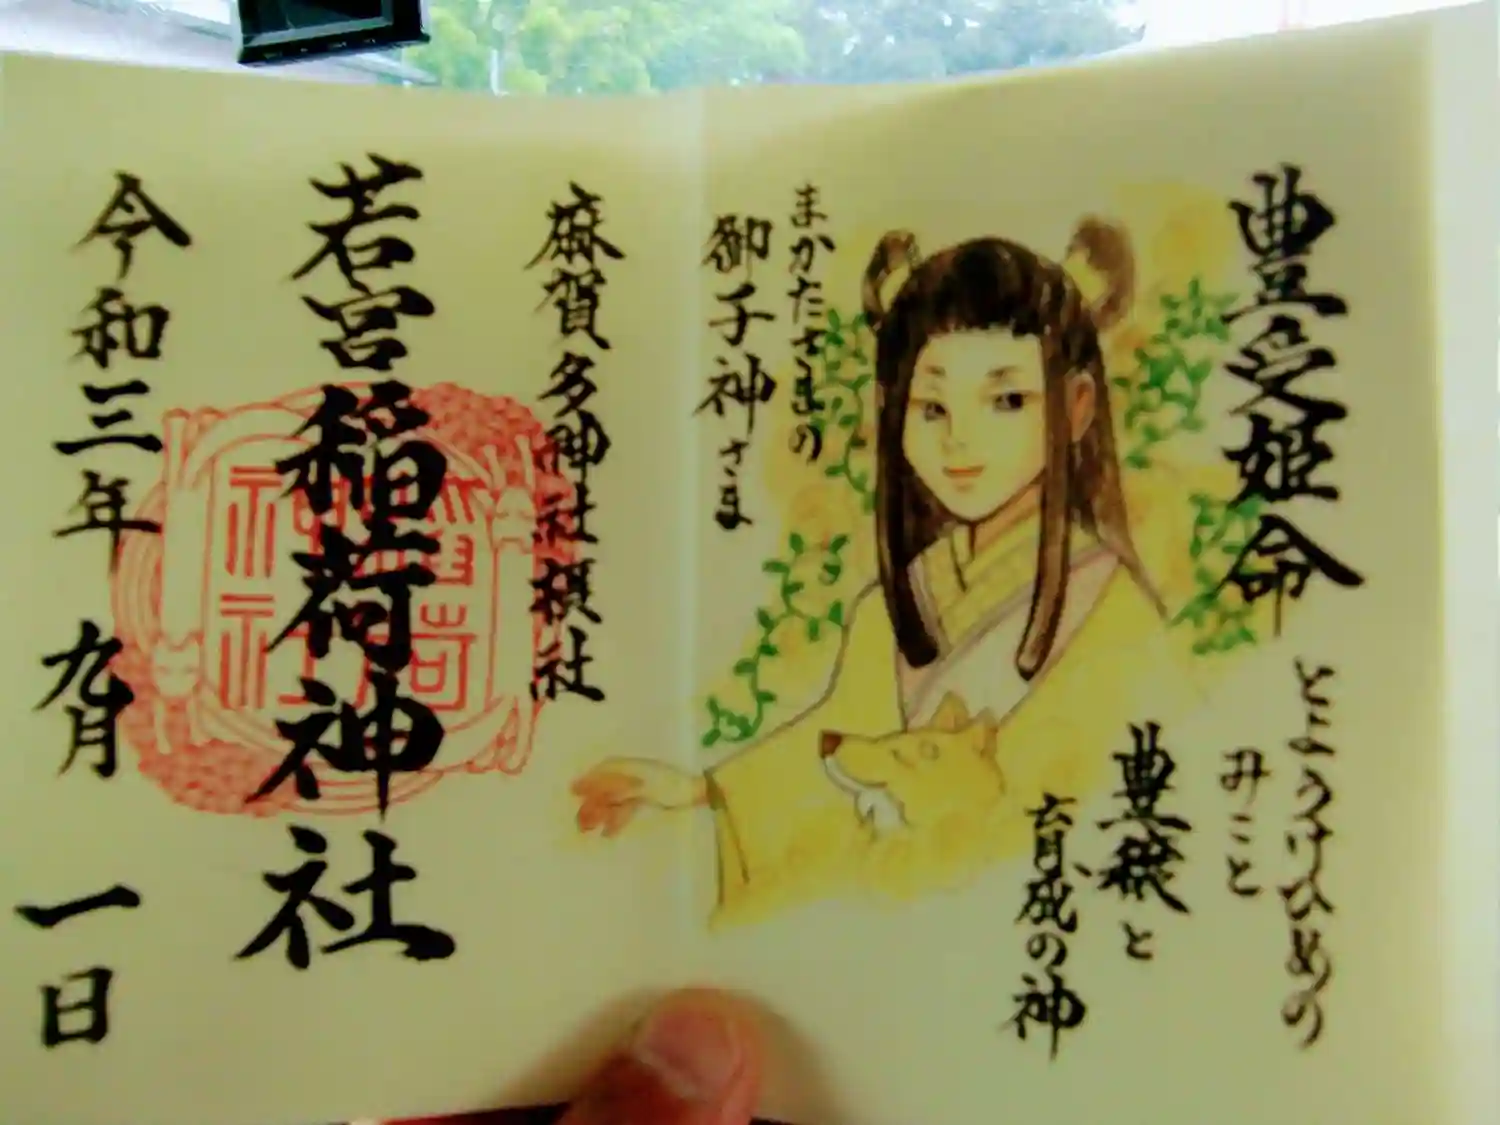 豊受姫命
とようけひめの
みこと
豊穣と
育成の神
まかたさまの
御子神さま
麻賀多神社摂社
若宮稲荷神社
稲荷
神社
令和三年 九月 一日